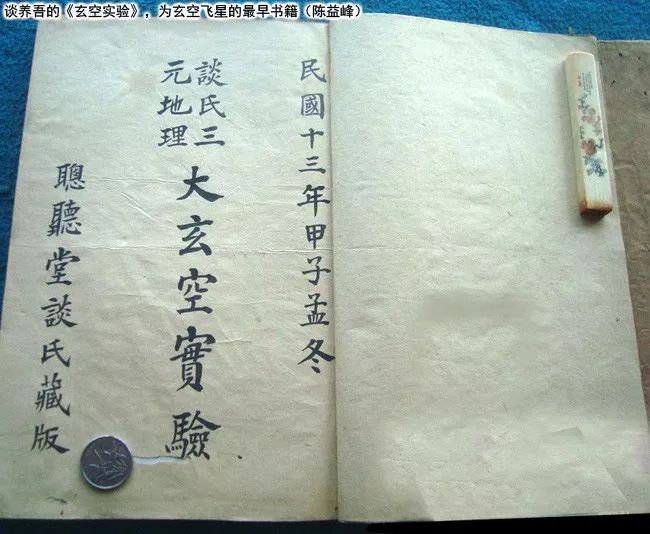 谈养吾的《玄空实验》，为玄空飞星的最早书籍（陈益峰）
民國十三年甲子孟冬
談氏三
元地理
大玄空實驗
聰聽堂談氏藏版